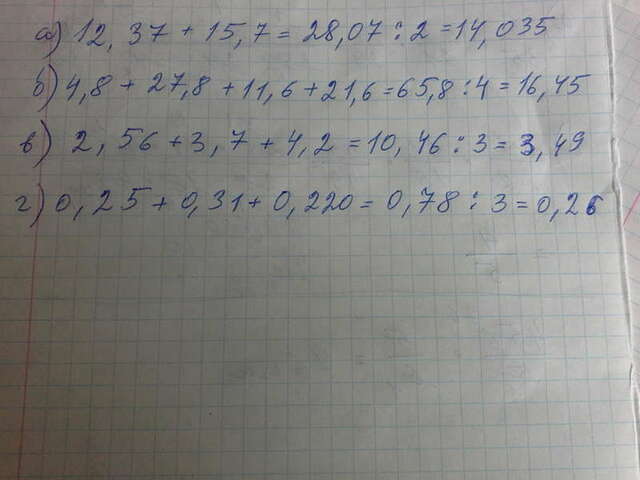 а) 12,37 + 15,7 = 28,07 : 2 = 14,035
б) 4,8 + 27,8 + 11,6 + 21,6 = 65,8 : 4 = 16,45
в) 2,56 + 3,7 + 4,2 = 10,46 : 3 = 3,49
г) 0,25 + 0,31 + 0,220 = 0,78 : 3 = 0,26